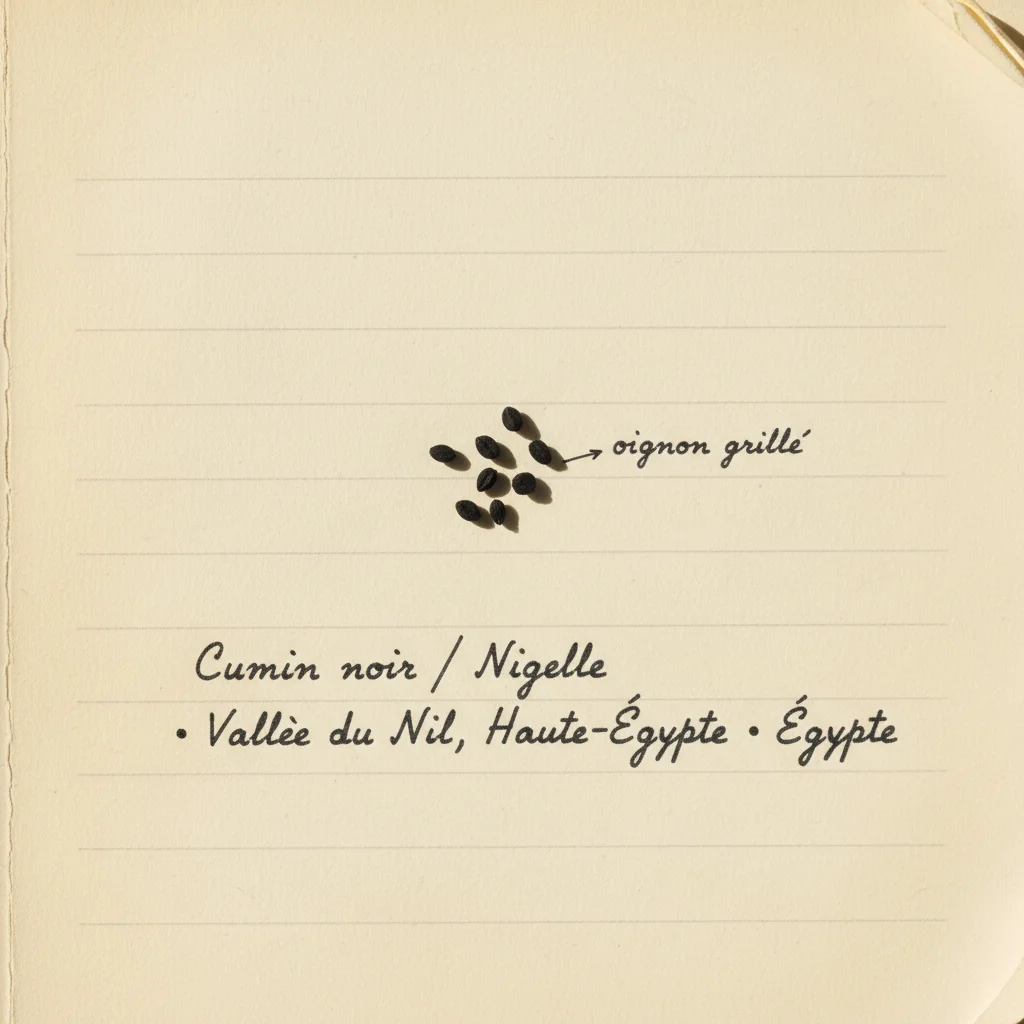 oignon grillé
Cumin noir / Nigelle
• Vallèe du Nil, Haute-Égypte • Égypte